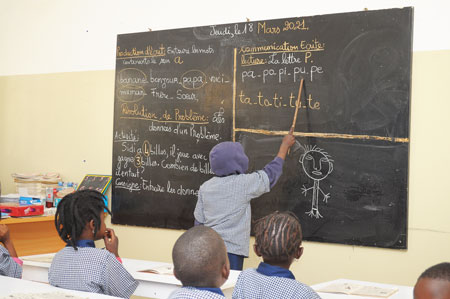 Jeudi, le 18 Mars 2021
Production d'écrit: Entoure les mots
contenants le son a
banane bonjour, papa, ici
maman Frère_ Sœur
Résolution de Problème: des
données d'un Problème.
Activité
Sidi a 4 billes, il joue avec
gagne 3 billes. Combien de billes
Consigne: Entoure les données
Communication Ecrite:
lecture: La lettre P.
pa_ pa pi_ pu_ pe
ta_ ta_ ti_ tu_ te